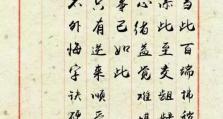 当此百端拂逆
深此至交龃龉
心绪益觉难
事已如此
只有逆来顺受
不外悔字诀硬